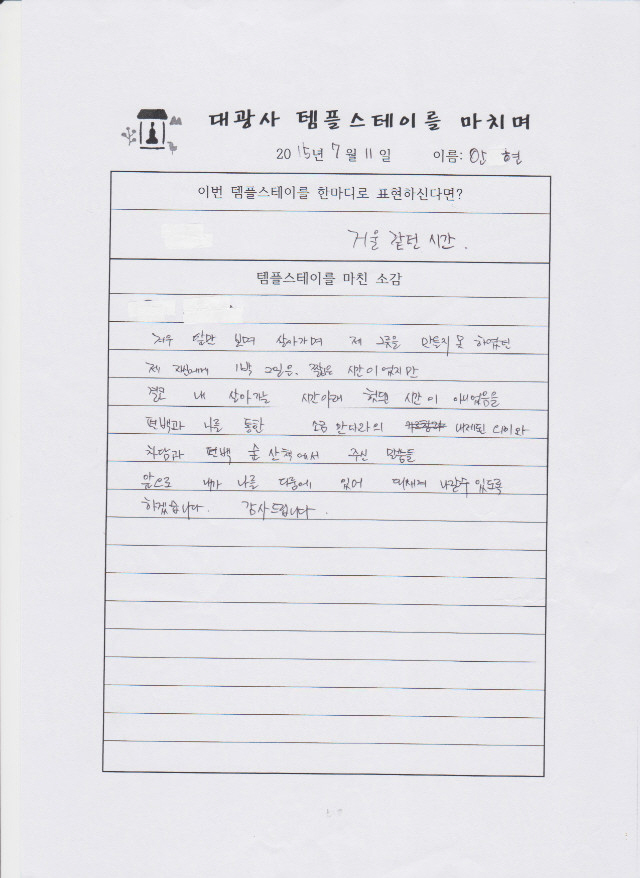 대광사 템플스테이를 마치며
2015년 7월 11일 이름: 현
이번 템플스테이를 한마디로 표현하신다면?
거울 같던 시간.
템플스테이를 마친 소감
앞만 보며 살아가며 제 그릇을 만들지 못 하였던
제 1박 2일은. 짧은 시간이었지만
결코 내 살아가는 시간아래 헛된 시간이 아니었음을
편백과 나를 통한 소금 만다라의 내제된 의미와
차담과 편백 숲 산책에서 주신 말씀들
앞으로 내가 나를 다룸에 있어 되새겨 나갈수 있도록
하겠습니다. 감사드립니다.